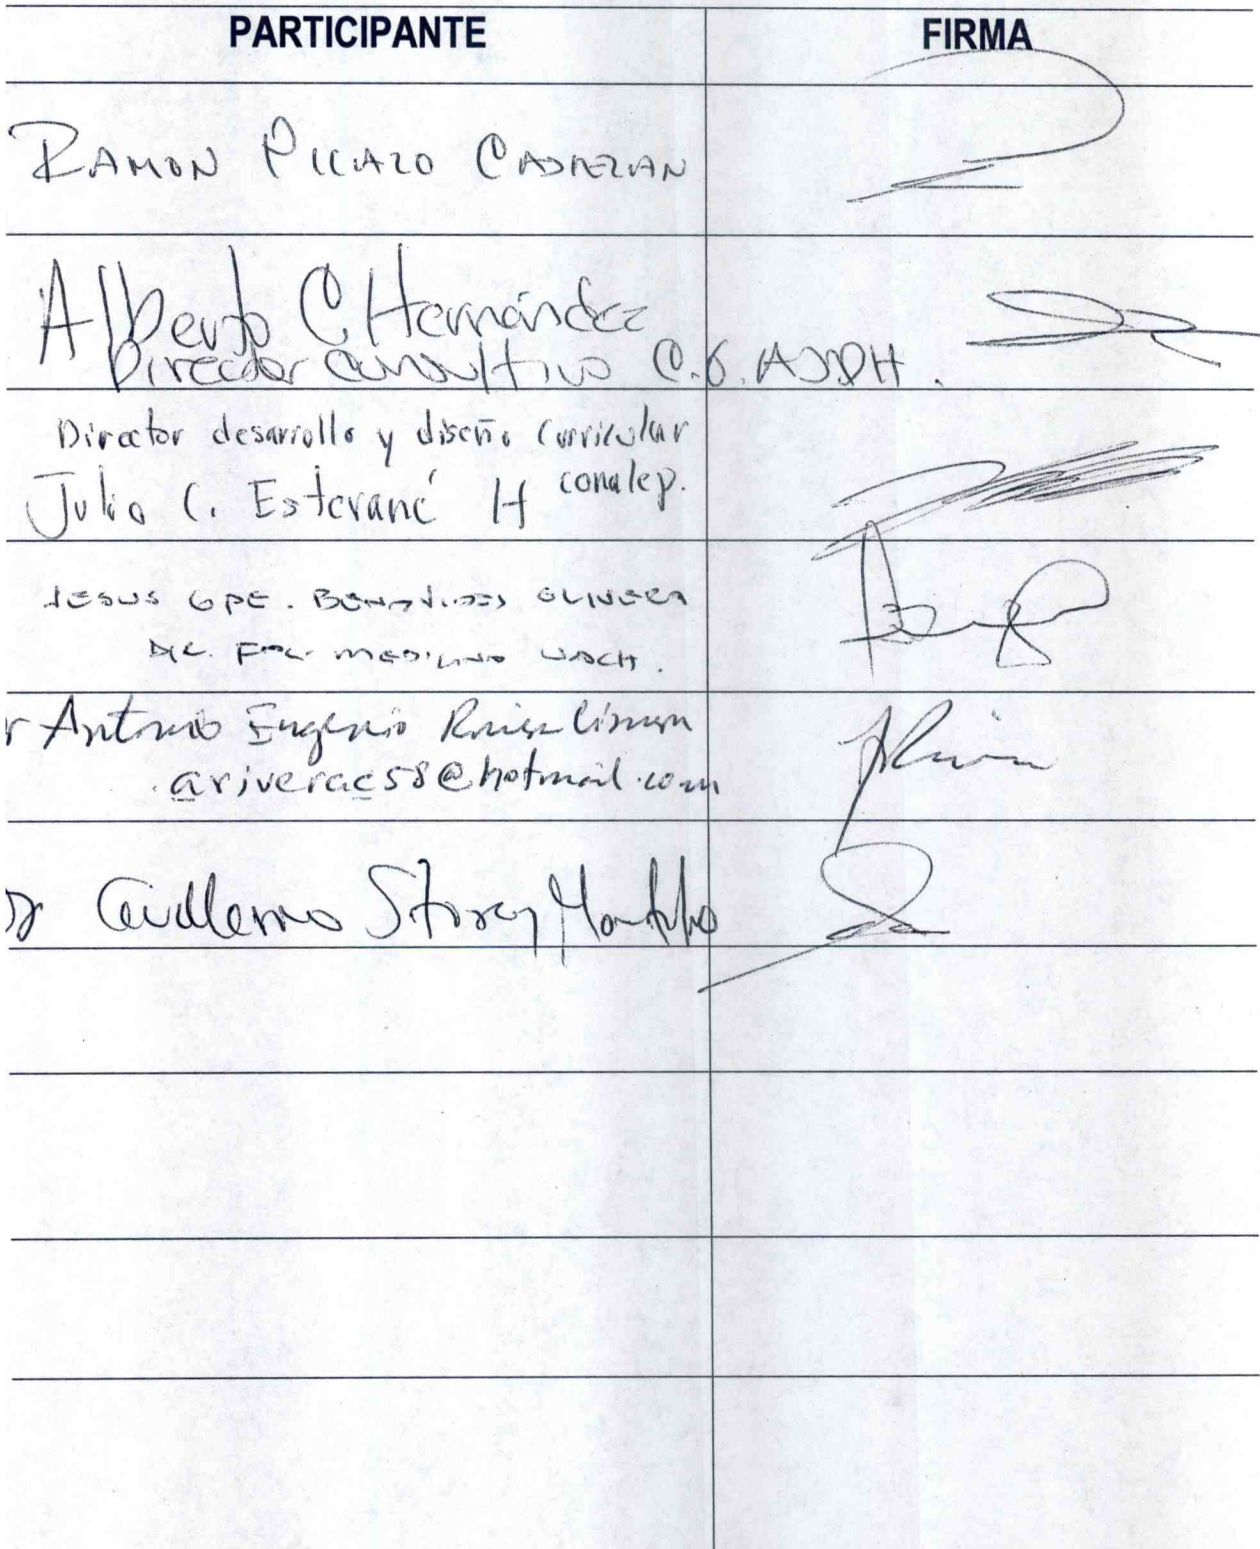 PARTICIPANTE FIRMA
RAMON PICAZO CASTEZAN
Alberto C Hernández
Director Consultivo C.G. AJDH.
Director desarrollo y diseño Curricular
Julio C. Estevané H conalep.
JESUS GPE. BENAVIDES OLIVERA
DIR. FAC. MEDICINA UACH.
r Antonio Eugenio Rivera
ariverac58@hotmail.com
Guillermo Storey